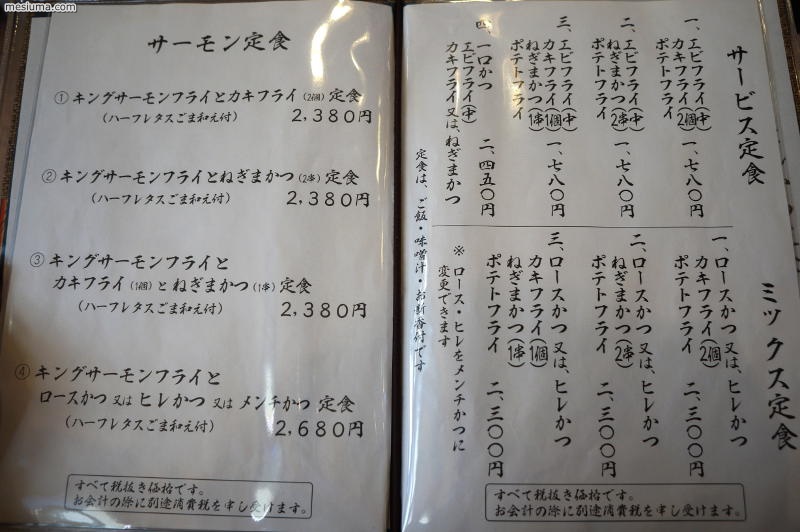 mesiuma.com
サーモン定食
① キングサーモンフライとカキフライ(2個)定食
(ハーフレタスごま和え付) 2,380円
② キングサーモンフライとねぎまかつ(2串)定食
(ハーフレタスごま和え付) 2,380円
③ キングサーモンフライと
カキフライ(1個)とねぎまかつ(1串)定食
(ハーフレタスごま和え付) 2,380円
④ キングサーモンフライと
ロースかつ又はヒレかつ又はメンチかつ定食
(ハーフレタスごま和え付) 2,680円
すべて税抜き価格です。
お会計の際に別途消費税を申し受けます。
サービス定食
一、エビフライ(中)
カキフライ(2個)
ポテトフライ
一、七八〇円
二、エビフライ(中)
ねぎまかつ(2串)
ポテトフライ
一、七八〇円
三、エビフライ(中)
カキフライ(1個)
ねぎまかつ(1串)
ポテトフライ
一、七八〇円
四、一口かつ
エビフライ(中)
カキフライ又は、ねぎまかつ
二、四五〇円
ミックス定食
一、ロースかつ又は、ヒレかつ
カキフライ(2個)
ポテトフライ
二、三〇〇円
二、ロースかつ又は、ヒレかつ
ねぎまかつ(2串)
ポテトフライ
二、三〇〇円
三、ロースかつ又は、ヒレかつ
カキフライ(1個)
ねぎまかつ(1串)
ポテトフライ
二、三〇〇円
※ロース・ヒレをメンチかつに
変更できます
定食は、ご飯・味噌汁・お新香付です
すべて税抜き価格です。
お会計の際に別途消費税を申し受けます。